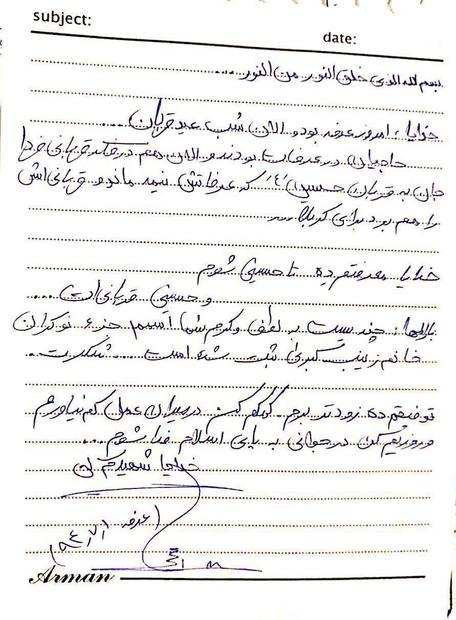 subject:
date:
بسم الله الذی خلق النور من النور ....
خدایا، امروز عرفه بود و الان شب عید قربان ....
حاجیان در عرفات بودند و الان هم در فکر قربانی فردا
جان به قربان حسین (ع) که عرفاتش نیمه ماند و قربانی‌اش
را هم برد برای کربلا ...
خدایا معرفتم ده تا حسینی شوم
و حسینی قربانی‌ات ....
بارالها: چند است به لطف و کرم شما اسمم جزء نوکران
خانم زینب کبری ثبت شده است .... شکرت ..
توفیقم ده زودتر بروم کمکم کن در میدان عمل کم نیاورم
و روزیم کن در جوانی به پای اسلام فدا شوم ...
خدایا شهیدم کن
(عرفه ۹۴/۷/۱)
Arman